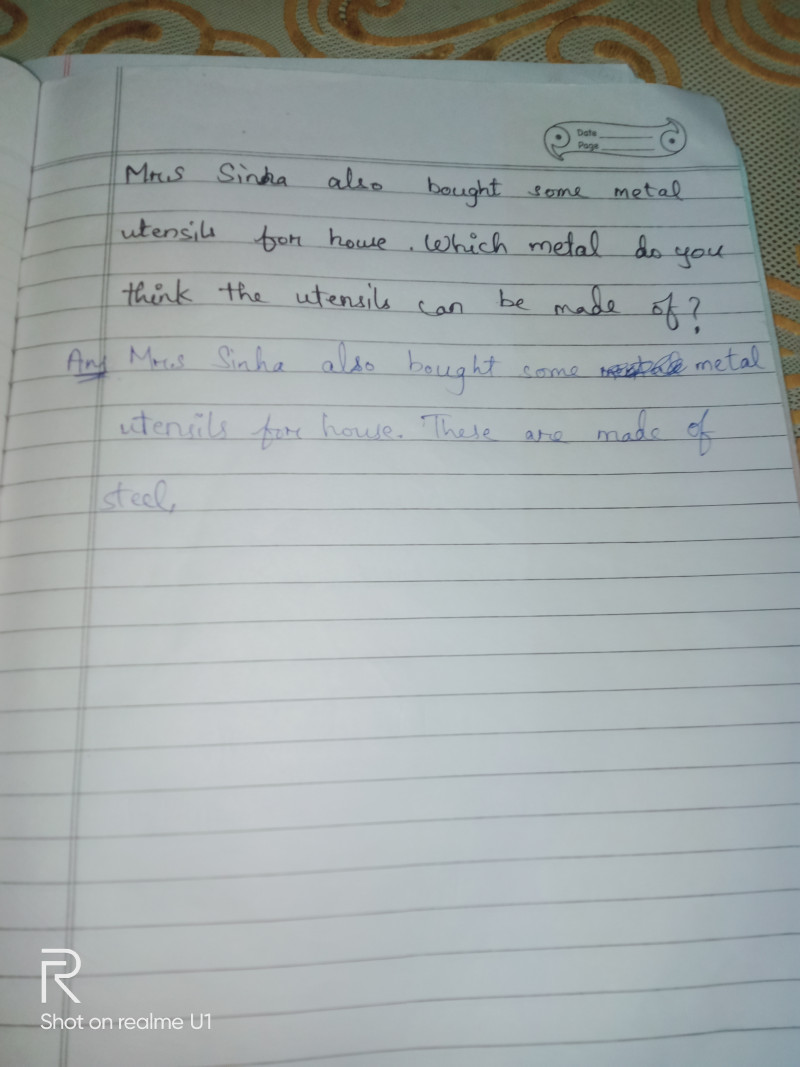 Date
Page
Mrs Sinha also bought some metal
utensils for house. Which metal do you
think the utensils can be made of?
Ans Mrs Sinha also bought some metal
utensils for house. These are made of
steel,
R
Shot on realme U1